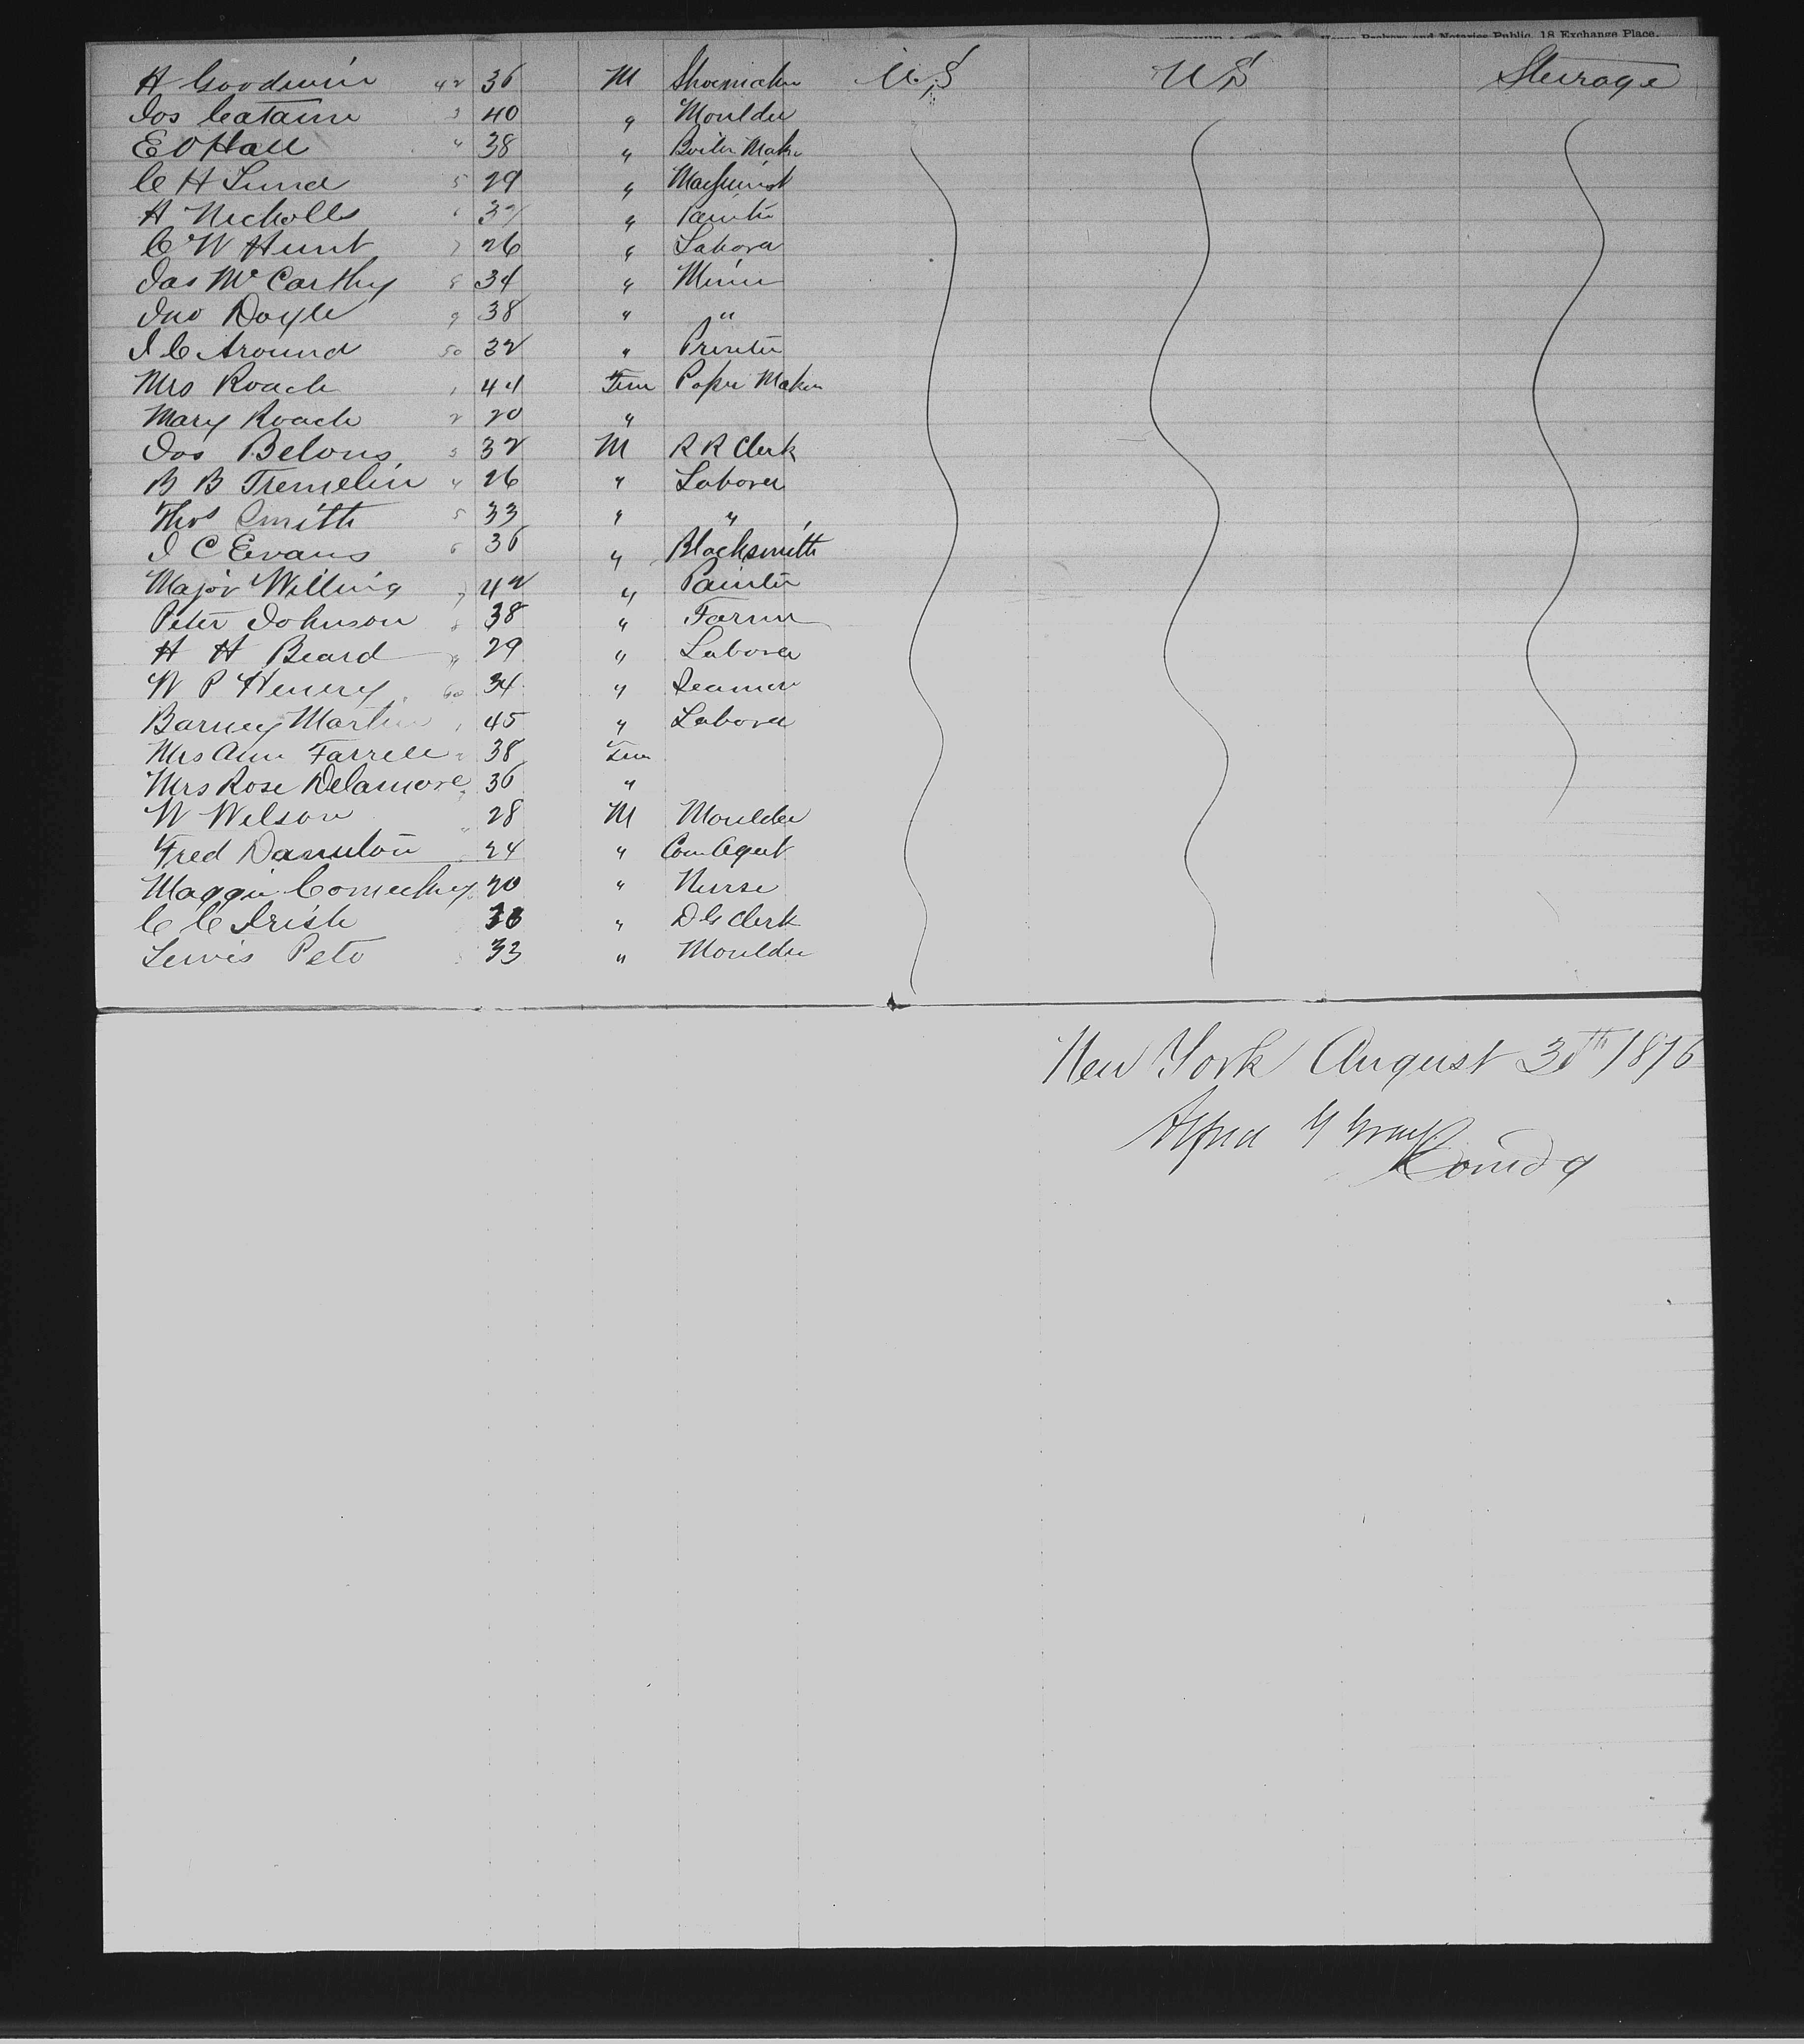 House Brokers and Notaries Public, 18 Exchange Place.
A Goodwin 42 36 M Shoemaker U.S US Steerage
Jos Cataine 3 40 " Moulder
E O Hall 4 38 " Boiler Maker
C H Lund 5 29 " Machinist
A Nicholls 6 32 " Painter
C W Hunt 7 26 " Laborer
Jas McCarthy 8 34 " Miner
Jno Doyle 9 38 " "
J C Around 50 32 " Printer
Mrs Roach 1 44 Fem Paper Maker
Mary Roach 2 20 "
Jos Belons 3 32 M R R Clerk
B B Tremelin 4 26 " Laborer
Thos Smith 5 33 " "
J C Evans 6 36 " Blacksmith
Major Willing 7 42 " Painter
Peter Johnson 8 38 " Farmer
H H Beard 9 29 " Laborer
W P Henery 60 34 " Seaman
Barney Martin 1 45 " Laborer
Mrs Ann Farrell 2 38 Fem
Mrs Rose Delamore 3 36 "
W Wilson 28 M Moulder
Fred Danulon 24 " Com Agent
Maggie 20 " Nurse
C C Irish " D G Clerk
Lewis Peto 33 " Moulder
New York August 30th 1876
Alfred G Gray